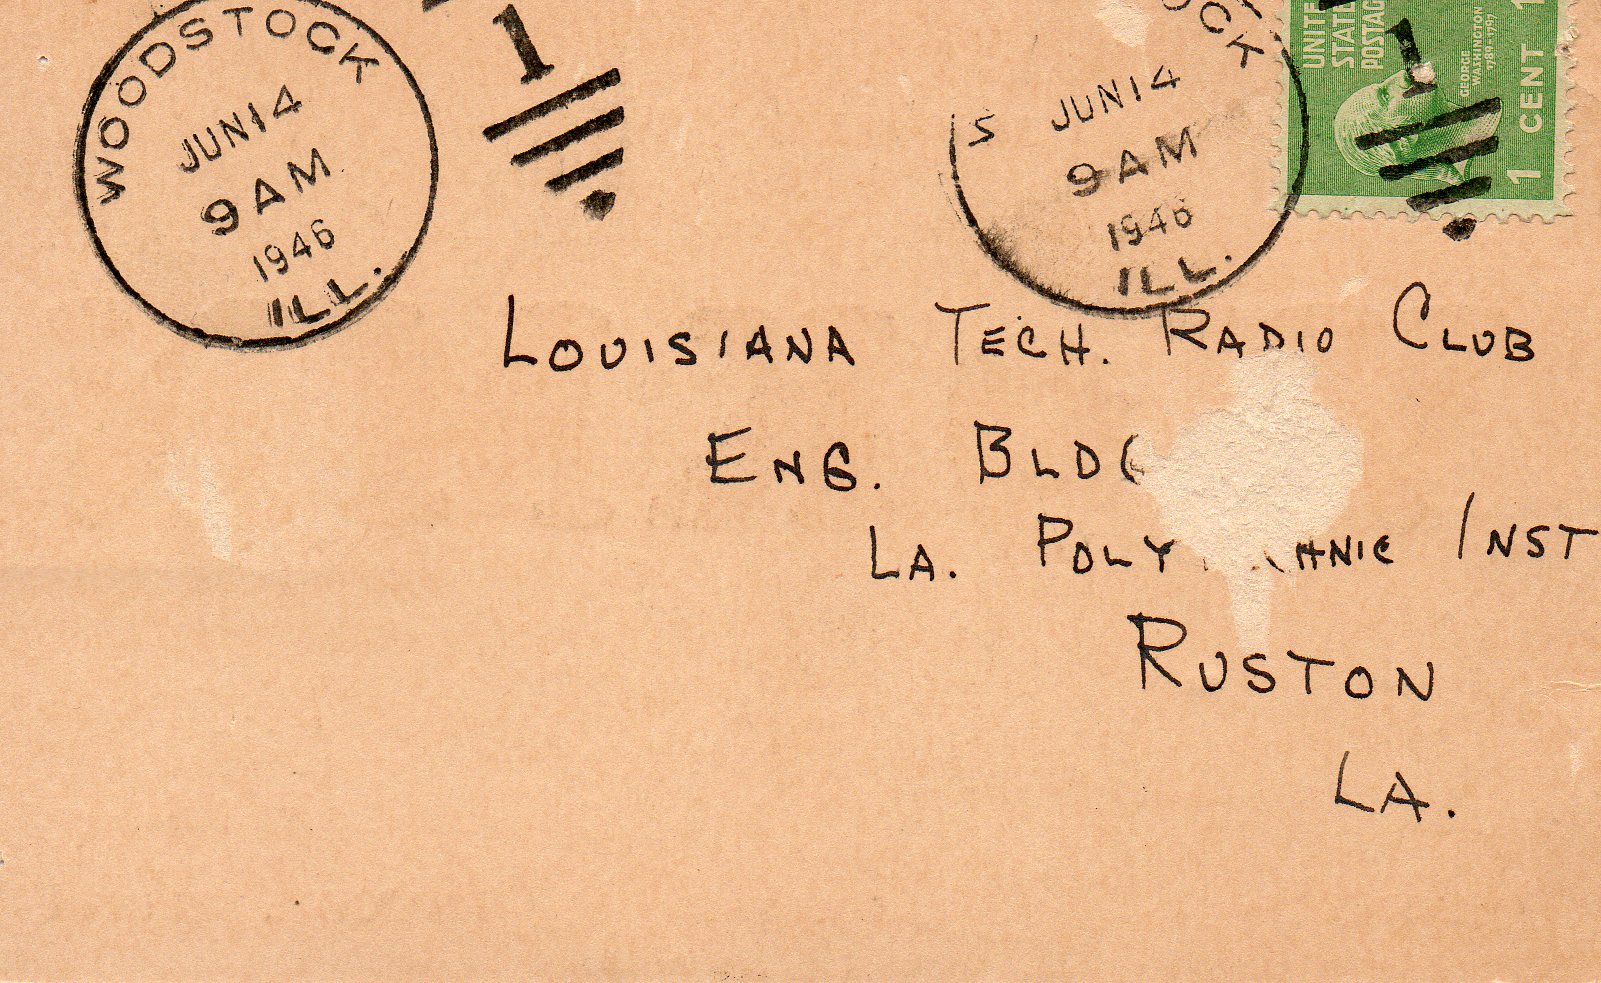 WOODSTOCK
JUN 14
9 AM
1946
ILL.
1
S OCK
JUN 14
9 AM
1946
ILL.
1
UNITE
STATE
POSTAG
GEORGE
WASHINGTON
1789-1797
1 CENT 1
LOUISIANA TECH. RADIO CLUB
ENG. BLDG
LA. POLY HNIC INST
RUSTON
LA.